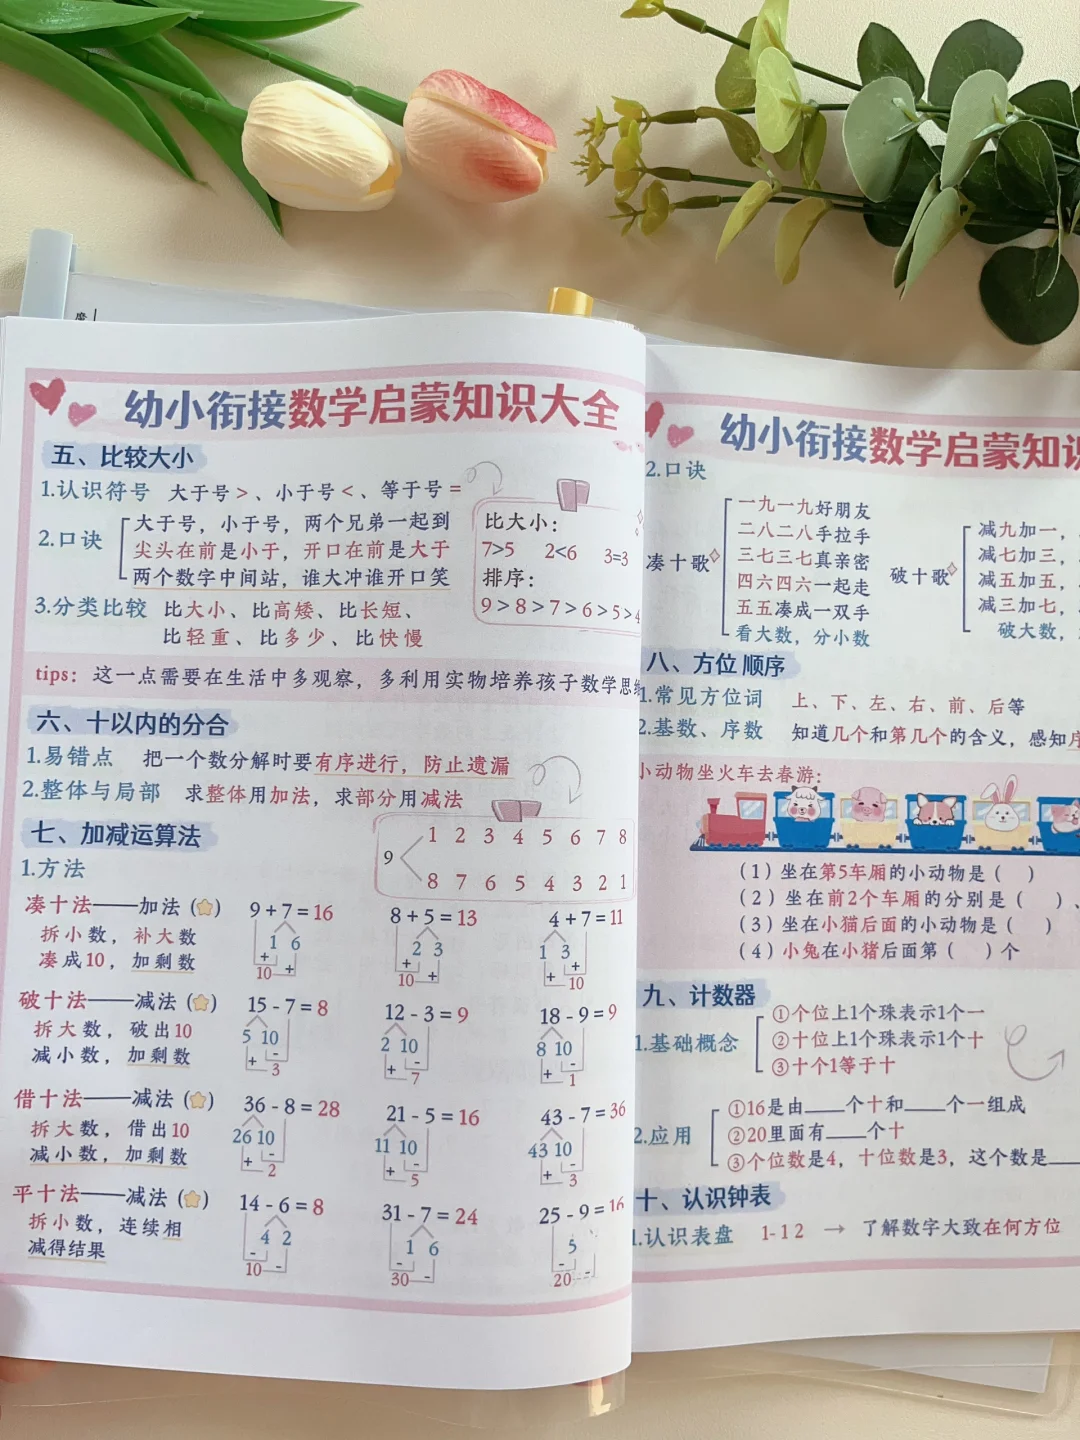 幼小衔接数学启蒙知识大全
五、比较大小
1.认识符号 大于号 > 、小于号 < 、等于号 =
2.口诀
大于号，小于号，两个兄弟一起到
尖头在前是小于，开口在前是大于
两个数字中间站，谁大冲谁开口笑
比大小：
7>5 2<6 3=3
排序：
9 > 8 > 7 > 6 > 5 > 4
3.分类比较 比大小、比高矮、比长短、
比轻重、比多少、比快慢
tips: 这一点需要在生活中多观察，多利用实物培养孩子数学思维
六、十以内的分合
1.易错点 把一个数分解时要有序进行，防止遗漏
2.整体与局部 求整体用加法，求部分用减法
9
1 2 3 4 5 6 7 8
8 7 6 5 4 3 2 1
七、加减运算法
1.方法
凑十法——加法 ( )
拆小数，补大数
凑成10，加剩数
9 + 7 = 16
1 6
+
10 +
8 + 5 = 13
2 3
+
10 +
4 + 7 = 11
1 3
+
+ 10
破十法——减法 ( )
拆大数，破出10
减小数，加剩数
15 - 7 = 8
5 10
+ -
3
12 - 3 = 9
2 10
+ -
7
18 - 9 = 9
8 10
+ -
1
借十法——减法 ( )
拆大数，借出10
减小数，加剩数
36 - 8 = 28
26 10
+ -
2
21 - 5 = 16
11 10
+ -
5
43 - 7 = 36
43 10
+ -
3
平十法——减法 ( )
拆小数，连续相
减得结果
14 - 6 = 8
4 2
-
10 -
31 - 7 = 24
1 6
-
30 -
25 - 9 = 16
5
-
20 -
幼小衔接数学启蒙知识
2.口诀
凑十歌
一九一九好朋友
二八二八手拉手
三七三七真亲密
四六四六一起走
五五凑成一双手
看大数，分小数
破十歌
减九加一，
减七加三，
减五加五，
减三加七，
破大数，
八、方位 顺序
1.常见方位词 上、下、左、右、前、后等
2.基数、序数 知道几个和第几个的含义，感知序
小动物坐火车去春游：
(1) 坐在第5车厢的小动物是 ( )
(2) 坐在前2个车厢的分别是 ( ) 、
(3) 坐在小猫后面的小动物是 ( )
(4) 小兔在小猪后面第 ( ) 个
九、计数器
1.基础概念
①个位上1个珠表示1个一
②十位上1个珠表示1个十
③十个1等于十
2.应用
①16是由____个十和____个一组成
②20里面有____个十
③个位数是4，十位数是3，这个数是____
十、认识钟表
1.认识表盘 1-12 → 了解数字大致在何方位